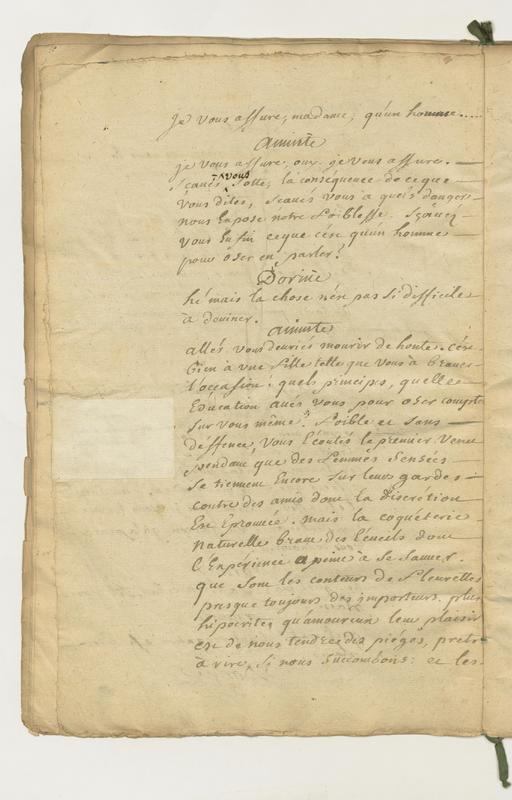 je vous assure, madame, qu'un homme.....
aminte
je vous assure, ouy je vous assure.
sçaués vous sotte, la conséquence de ce que
vous dites, scaués vous a quels danger
nous Expose notre foiblesse. sçauez
vous Enfin ce que c'ése qu'un homme
pour oser en parler?
Dorine
hé mais la chose n'ése pas si difficile
à deviner.
aminte
allés vous deuriés mourir de honte. c'ése
bien à une fille telle que vous à brauer
l'occasion. quels princips, quelle
Education aués vous pour oser compter
sur vous même? foible et sans
deffence, vous l'écoutés le premier venu
pendant que des femmes sensées
se tiennent Encore sur leurs gardes
contre des amis dont la discretion
Ese Eprouuée. mais la coquéterie
naturelle braue des l'éceuils dont
l'Expérience a peine à se sauuer.
que sont les conteurs de fleurettes
presque toujours des imposteurs plus
hipocrites qu'amoureux leur plaisir
ese de nous tendre des pieges, prets
à rire, si nous succombons: et les